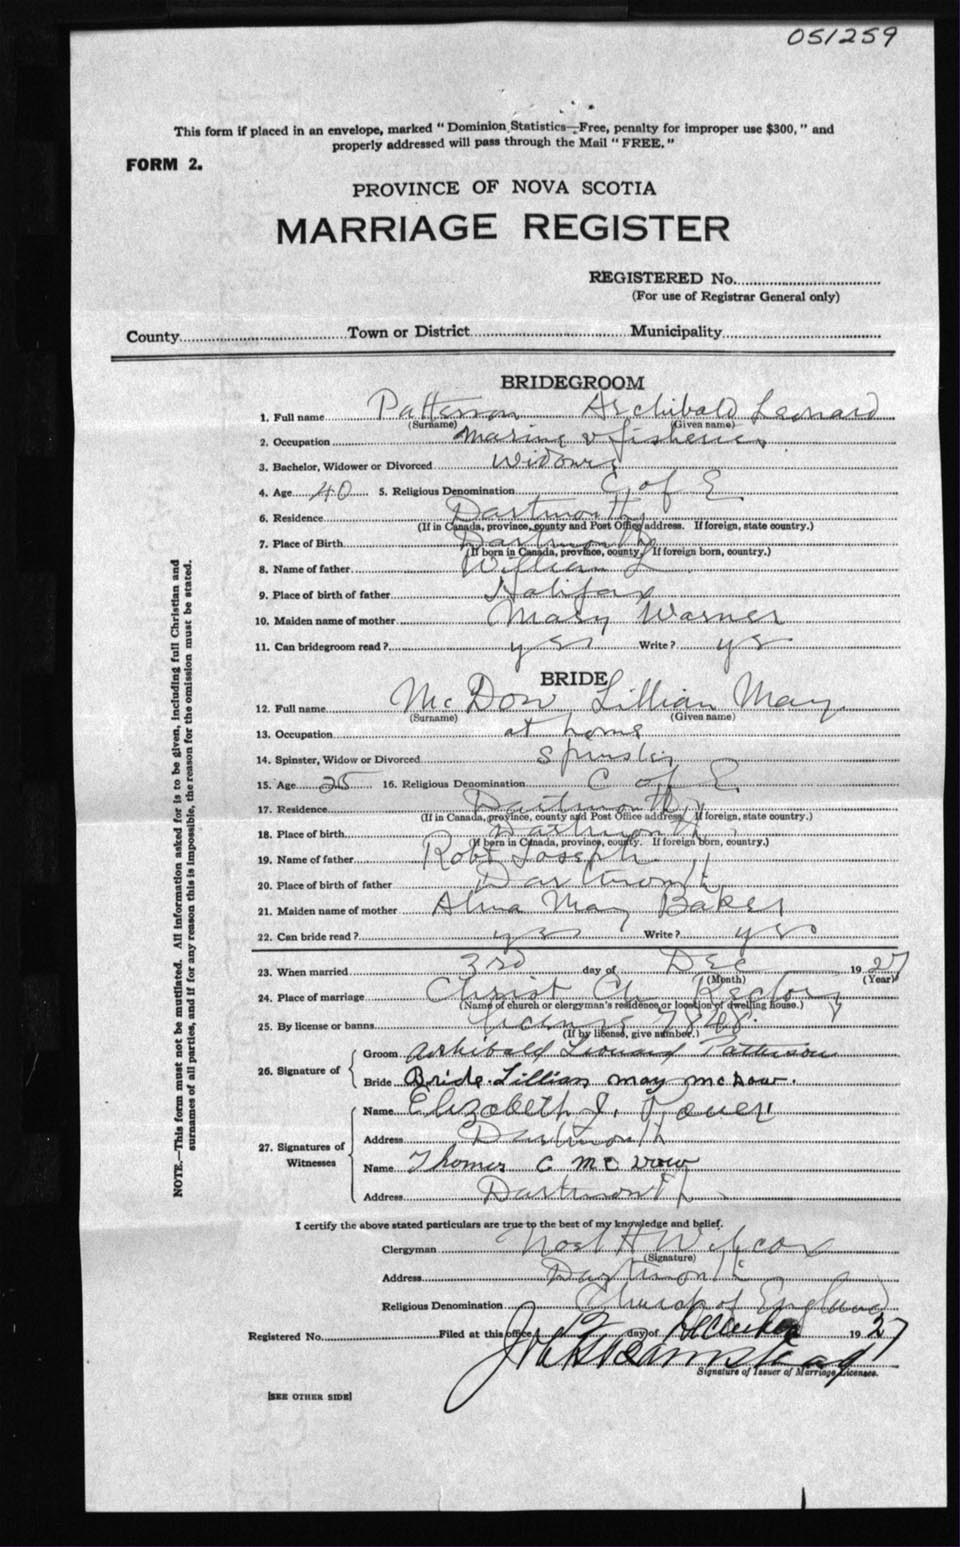 051259
This form if placed in an envelope, marked "Dominion Statistics—Free, penalty for improper use $300," and
properly addressed will pass through the Mail "FREE."
FORM 2.
PROVINCE OF NOVA SCOTIA
MARRIAGE REGISTER
REGISTERED No.
(For use of Registrar General only)
County Town or District Municipality
BRIDEGROOM
1. Full name Patterson Archibald Leonard
(Surname) (Given name)
2. Occupation Marine & fisheries
3. Bachelor, Widower or Divorced Widower
4. Age 40 5. Religious Denomination C of E
6. Residence Dartmouth
(If in Canada, province, county and Post Office address. If foreign, state country.)
7. Place of Birth Dartmouth
(If born in Canada, province, county. If foreign born, country.)
8. Name of father William L
9. Place of birth of father Halifax
10. Maiden name of mother Mary Warner
11. Can bridegroom read? yes Write? yes
BRIDE
12. Full name McDow Lillian May
(Surname) (Given name)
13. Occupation at home
14. Spinster, Widow or Divorced Spinster
15. Age 25 16. Religious Denomination C of E
17. Residence Dartmouth
(If in Canada, province, county and Post Office address. If foreign, state country.)
18. Place of birth Dartmouth
(If born in Canada, province, county. If foreign born, country.)
19. Name of father Robt Joseph
20. Place of birth of father Dartmouth
21. Maiden name of mother Alma May Baker
22. Can bride read? yes Write? yes
23. When married 3rd day of Dec 1927
(Month) (Year)
24. Place of marriage Christ Ch. Rectory
(Name of church or clergyman's residence, or location of dwelling house.)
25. By license or banns license
(If by license, give number.)
26. Signature of Groom Archibald Leonard Patterson
Bride Bride. Lillian may mcdow.
27. Signatures of Witnesses Name Elizabeth J.
Address Dartmouth
Name Thomas C McDow
Address Dartmouth
I certify the above stated particulars are true to the best of my knowledge and belief.
Clergyman Noel H Wilcox
(Signature)
Address Dartmouth
Religious Denomination Church of England
Registered No. Filed at this office 12 day of December 1927
Signature of Issuer of Marriage Licenses.
[SEE OTHER SIDE]
NOTE.—This form must not be mutilated. All information asked for is to be given, including full Christian and
surnames of all parties, and if for any reason this is impossible, the reason for the omission must be stated.